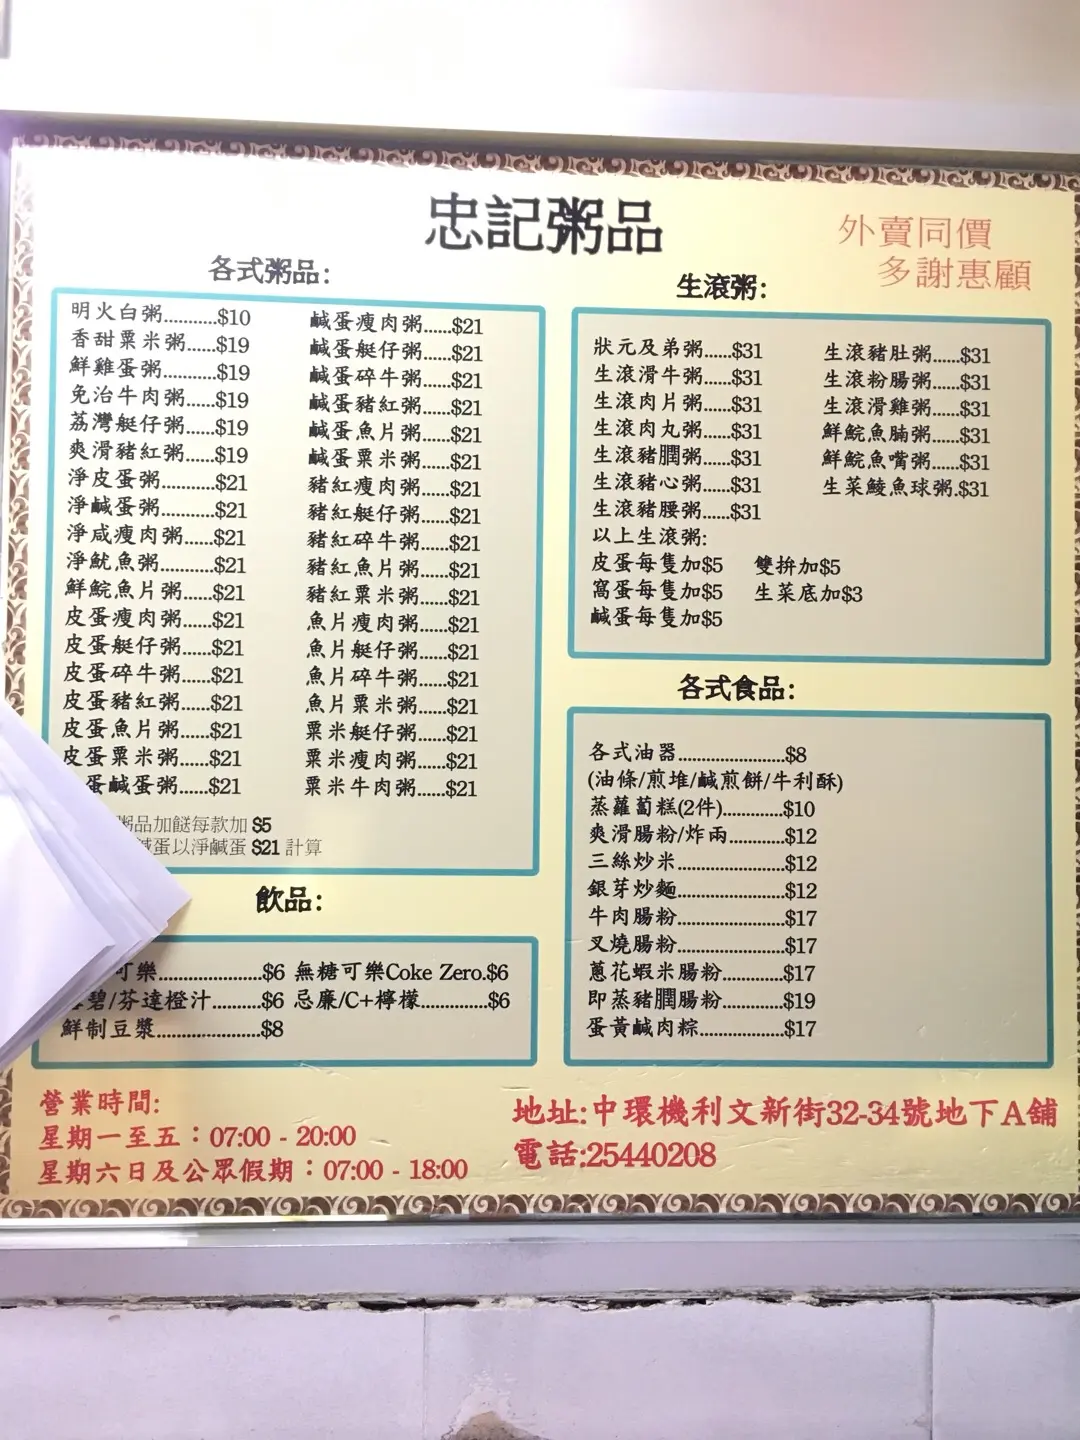 忠記粥品
外賣同價
多謝惠顧
各式粥品:
明火白粥...........$10
香甜粟米粥......$19
鮮雞蛋粥............$19
免治牛肉粥......$19
荔灣艇仔粥......$19
爽滑豬紅粥......$19
淨皮蛋粥............$21
淨鹹蛋粥............$21
淨咸瘦肉粥......$21
淨魷魚粥............$21
鮮鯇魚片粥......$21
皮蛋瘦肉粥......$21
皮蛋艇仔粥......$21
皮蛋碎牛粥......$21
皮蛋豬紅粥......$21
皮蛋魚片粥......$21
皮蛋粟米粥......$21
蛋鹹蛋粥......$21
鹹蛋瘦肉粥......$21
鹹蛋艇仔粥......$21
鹹蛋碎牛粥......$21
鹹蛋豬紅粥......$21
鹹蛋魚片粥......$21
鹹蛋粟米粥......$21
豬紅瘦肉粥......$21
豬紅艇仔粥......$21
豬紅碎牛粥......$21
豬紅魚片粥......$21
豬紅粟米粥......$21
魚片瘦肉粥......$21
魚片艇仔粥......$21
魚片碎牛粥......$21
魚片粟米粥......$21
粟米艇仔粥......$21
粟米瘦肉粥......$21
粟米牛肉粥......$21
粥品加餸每款加 $5
鹹蛋以淨鹹蛋 $21 計算
飲品:
可樂.....................$6 無糖可樂Coke Zero.$6
碧/芬達橙汁..........$6 忌廉/C+檸檬..............$6
鮮制豆漿.....................$8
生滾粥:
狀元及弟粥......$31
生滾滑牛粥......$31
生滾肉片粥......$31
生滾肉丸粥......$31
生滾豬膶粥......$31
生滾豬心粥......$31
生滾豬腰粥......$31
生滾豬肚粥......$31
生滾粉腸粥......$31
生滾滑雞粥......$31
鮮鯇魚腩粥......$31
鮮鯇魚嘴粥......$31
生菜鯪魚球粥.$31
以上生滾粥:
皮蛋每隻加$5 雙拚加$5
窩蛋每隻加$5 生菜底加$3
鹹蛋每隻加$5
各式食品:
各式油器......................$8
(油條/煎堆/鹹煎餅/牛利酥)
蒸蘿蔔糕(2件)............$10
爽滑腸粉/炸兩...........$12
三絲炒米......................$12
銀芽炒麵......................$12
牛肉腸粉......................$17
叉燒腸粉......................$17
蔥花蝦米腸粉............$17
即蒸豬膶腸粉............$19
蛋黃鹹肉粽.................$17
營業時間:
星期一至五：07:00 - 20:00
星期六日及公眾假期：07:00 - 18:00
地址:中環機利文新街32-34號地下A舖
電話:25440208